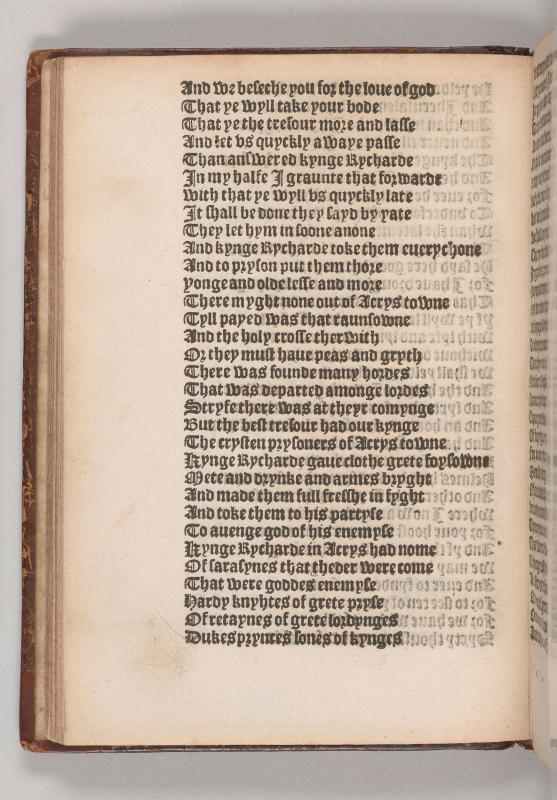 And we beseche you for the loue of god
That ye wyll take your bode
That ye the tresour more and lasse
And let vs quyckly awaye passe
Than answered kynge Rycharde
In my halfe I graunte that forwarde
with that ye wyll vs quyckly late
It shall be done they sayd by yate
They let hym in soone anone
And kynge Rycharde toke them euerychone
And to pryson put them thore
yonge and olde lesse and more
There myght none out of Acrys towne
Tyll payed was that raunsowne
And the holy crosse therwith
Or they must haue peas and gryth
There was founde many hordes
That was departed amonge lordes
Stryfe there was at theyr comynge
But the best tresour had our kynge
The crysten prysoners of Acrys towne
Kynge Rycharde gaue clothe grete foysowne
Mete and drynke and armes bryght
And made them full fresshe in fyght
And toke them to his partyse
To auenge god of his enemyse
Kynge Rycharde in Acrys had nome
Of sarasynes that theder were come
That were goddes enemyse
Hardy knyhtes of grete pryse
Of retaynes of grete lordynges
Dukes prynces sones of kynges